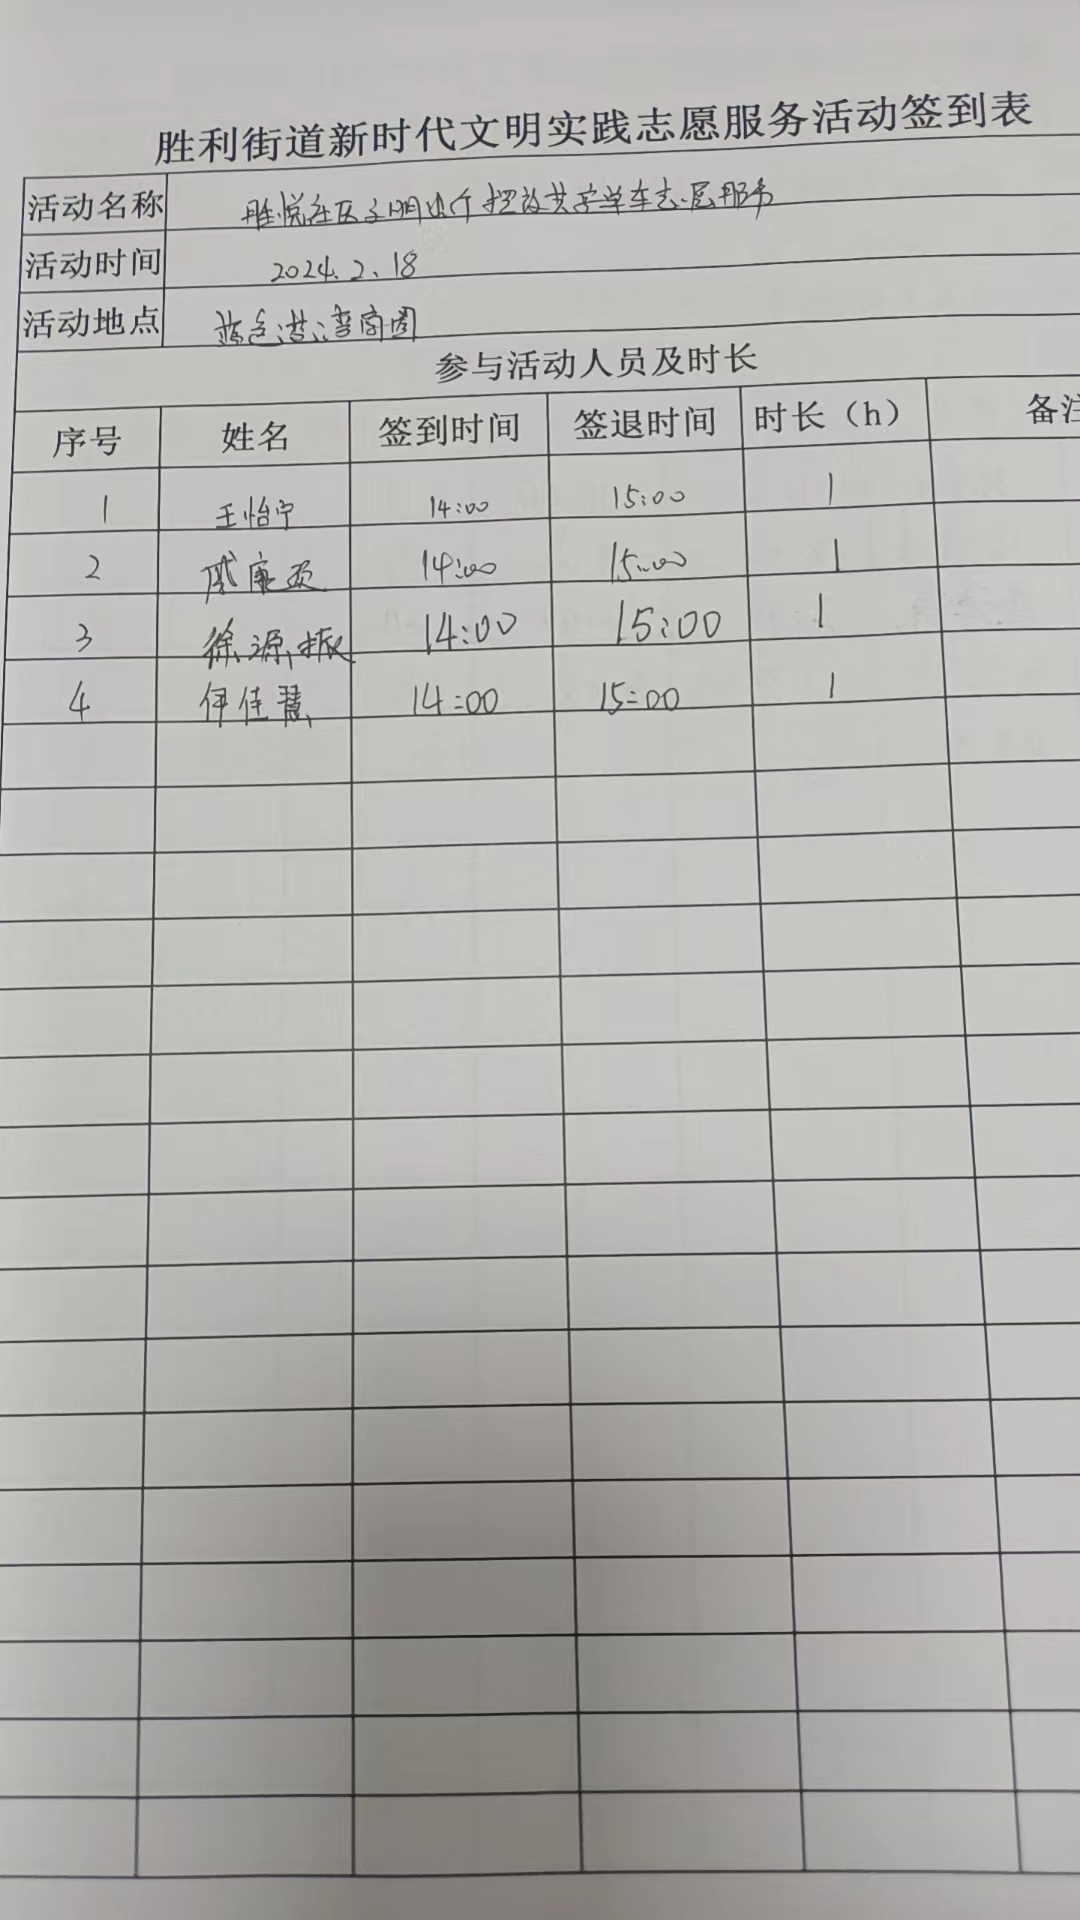 胜利街道新时代文明实践志愿服务活动签到表
活动名称 胜悦社区文明出行摆放共享单车志愿服务
活动时间 2024.2.18
活动地点 蓝色港湾商圈
参与活动人员及时长
序号 姓名 签到时间 签退时间 时长（h） 备注
1 王怡宁 14:00 15:00 1
2 14:00 15:00 1
3 徐源振 14:00 15:00 1
4 伊佳慧 14:00 15:00 1